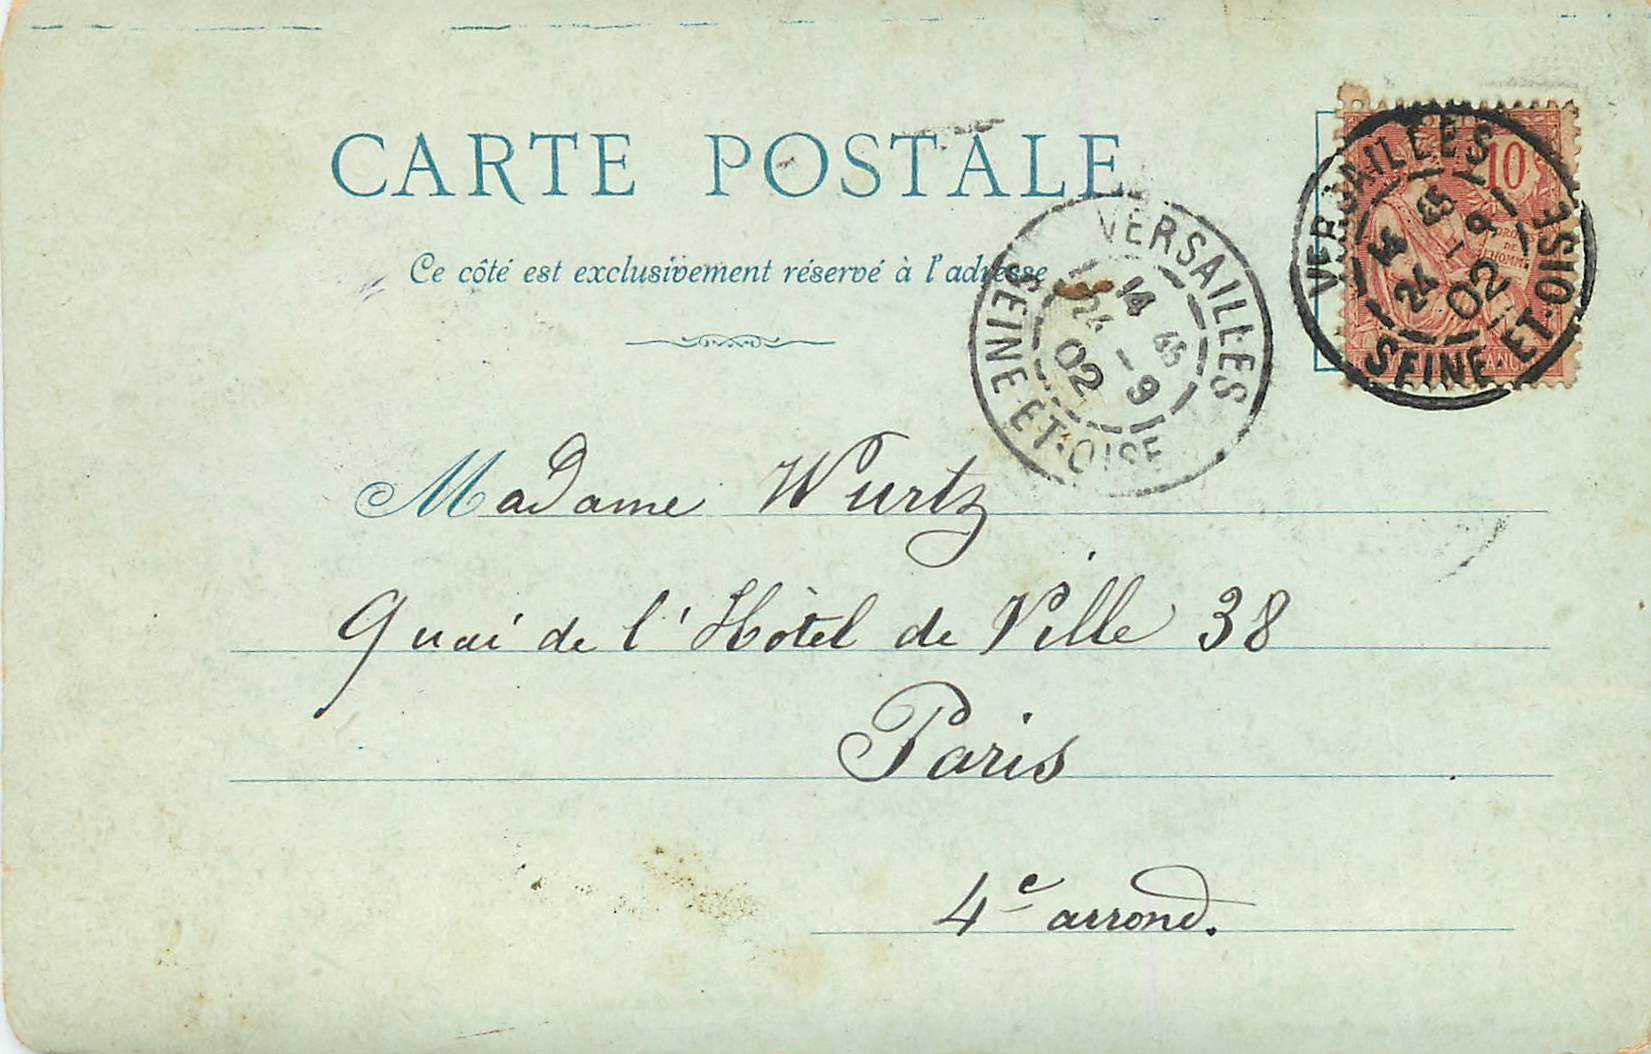 CARTE POSTALE
Ce côté est exclusivement réservé à l'adresse
VERSAILLES
14 45
24 - 9
02
SEINE-ET-OISE
10
DROITS
DE
L'HOMME
VERSAILLES
14 45
24 - 9
02
SEINE-ET-OISE
Madame Wurtz
Quai de l'Hôtel de Ville 38
Paris
4e arrond.